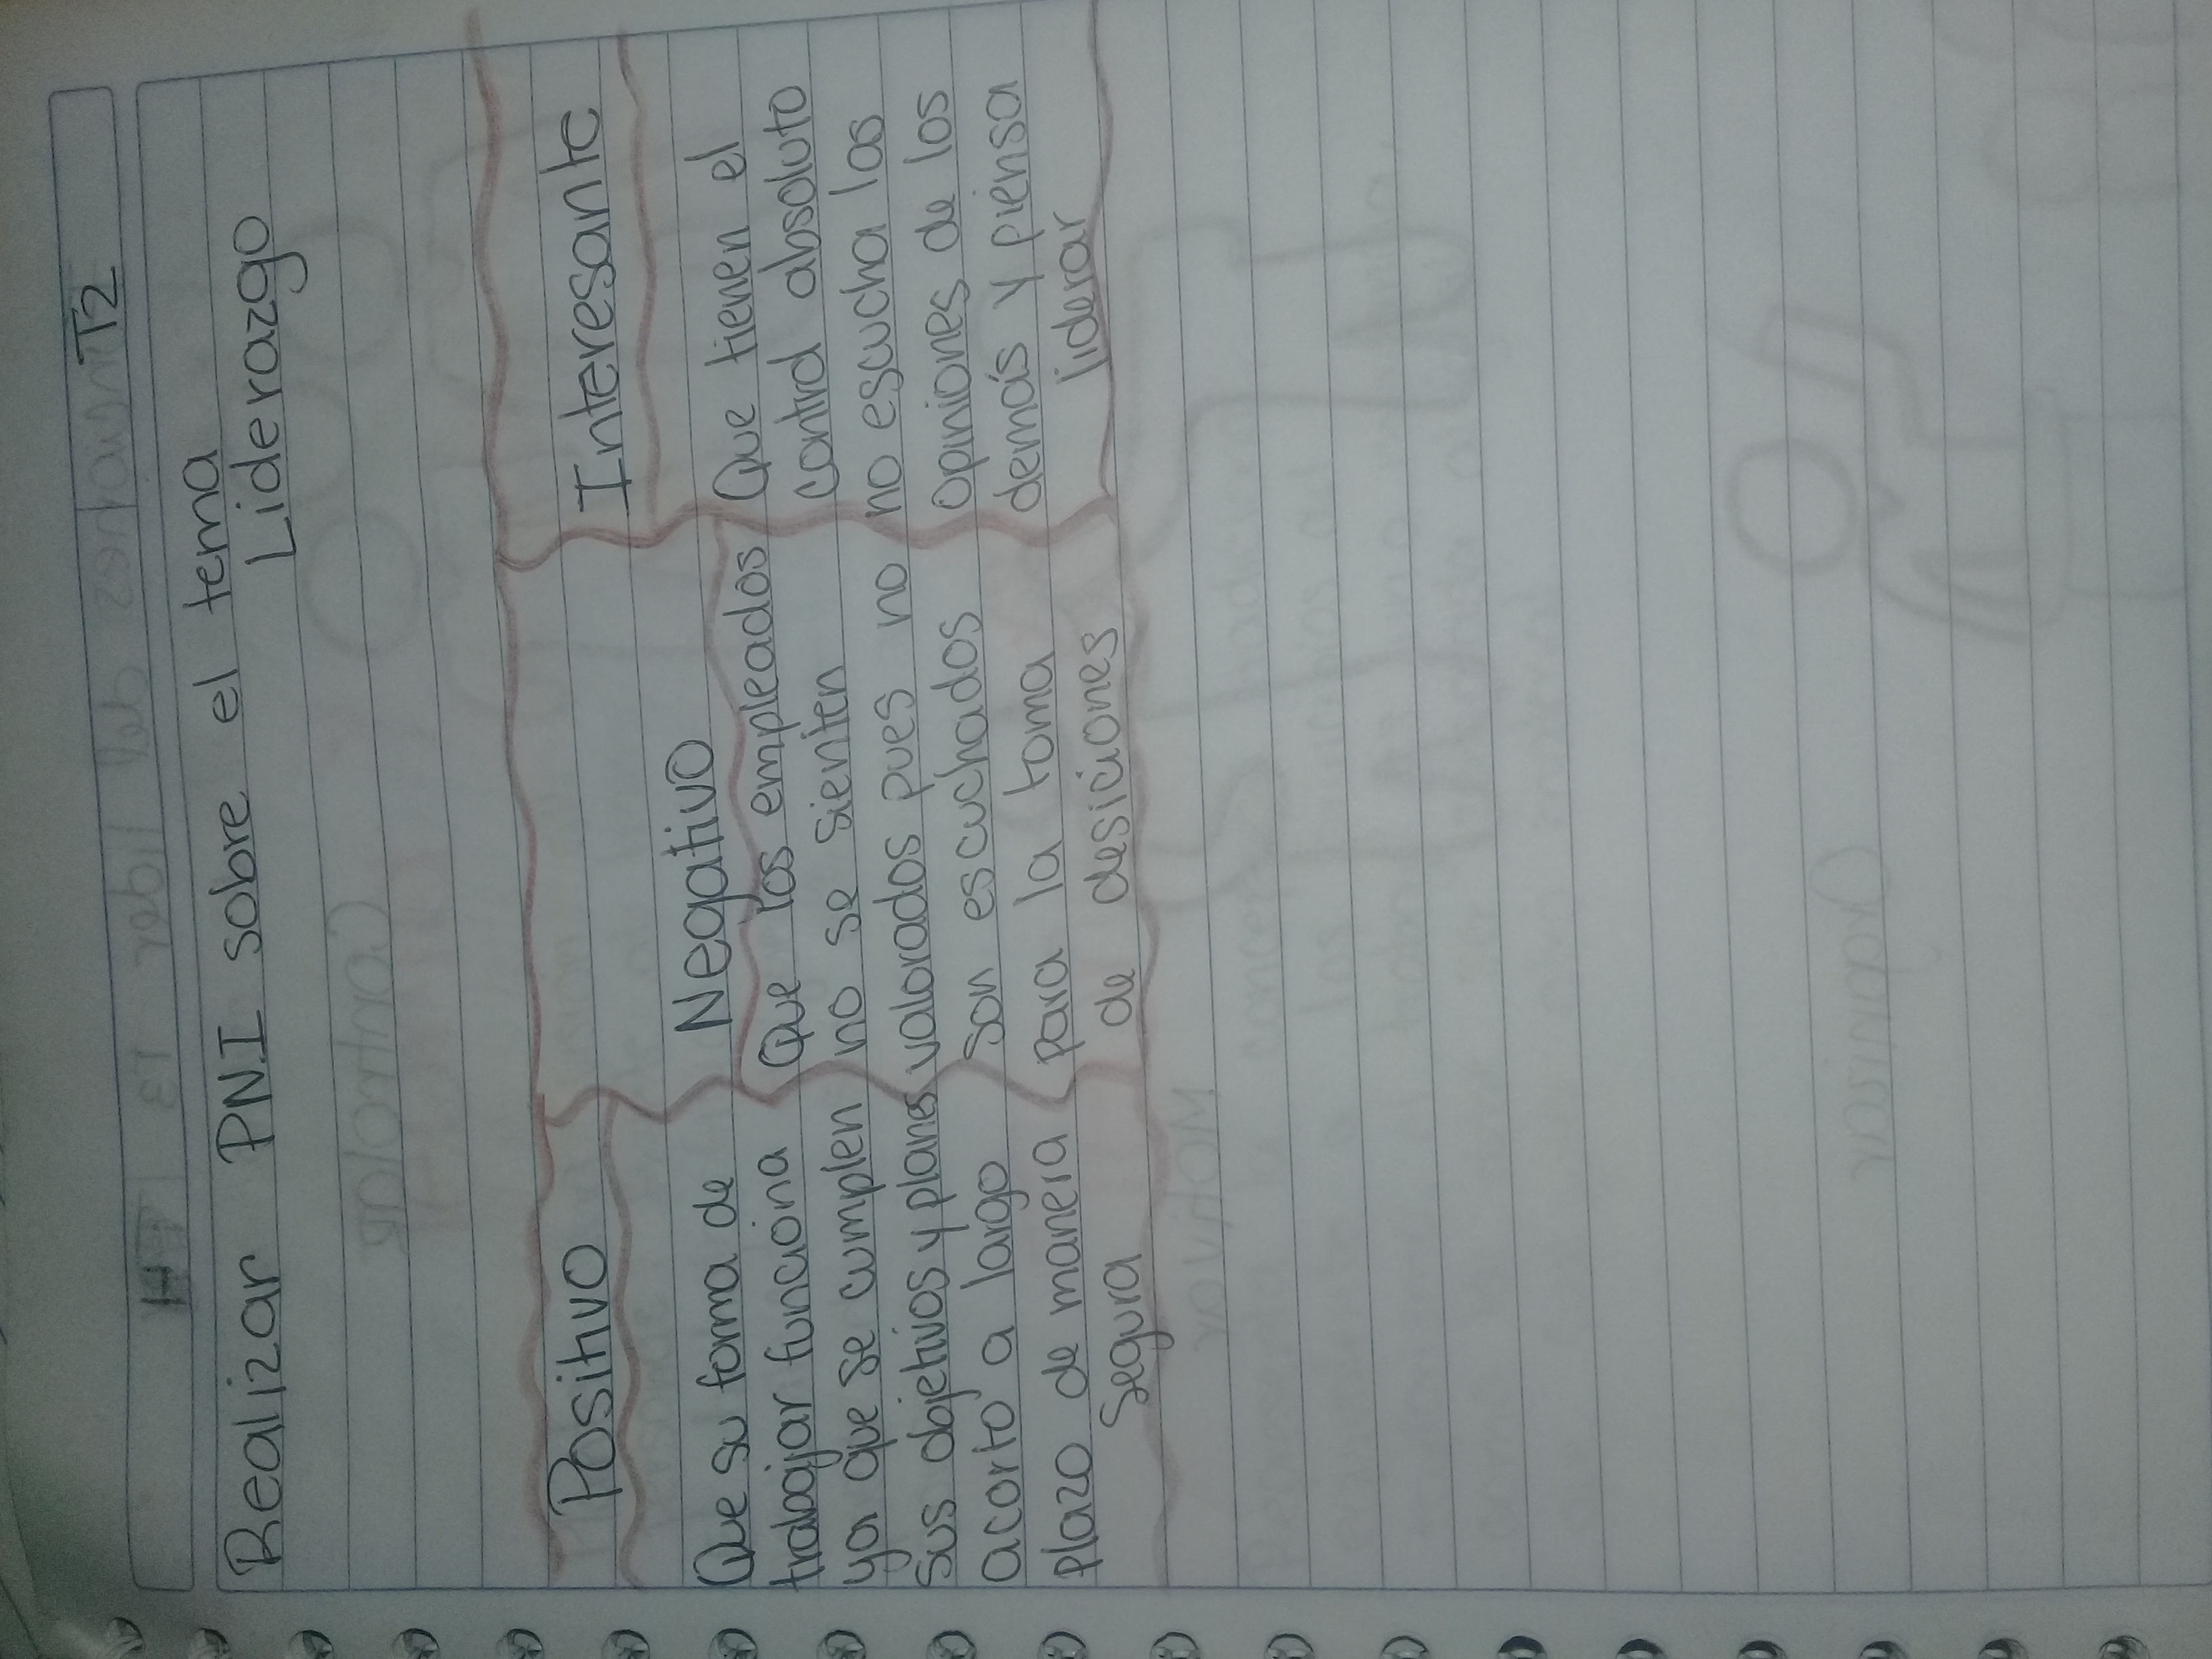 T2
Realizar PNI sobre el tema
Liderazgo
Positivo
Que su forma de
trabajar funciona
ya que se cumplen
sus objetivos y planes
acorto a largo
plazo de manera
segura
Negativo
Que los empleados
no se sienten
valorados pues no
son escuchados
para la toma
de desiciones
Interesante
Que tienen el
control absoluto
no escucha las
opiniones de los
demás y piensa
liderar